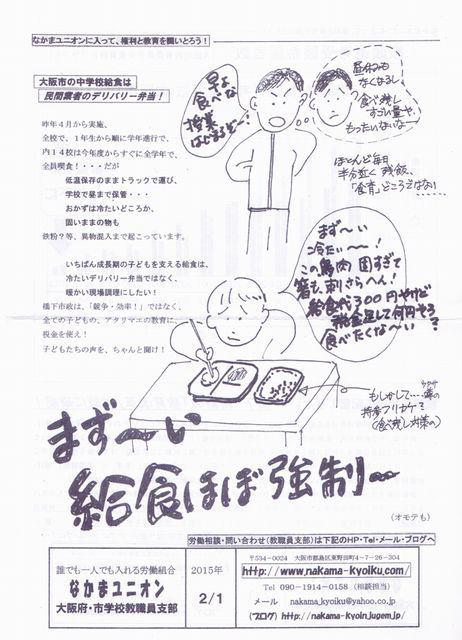 なかまユニオンに入って、権利と教育を闘いとろう！
大阪市の中学校給食は
民間業者のデリバリー弁当！
昨年４月から実施、
全校で、１年生から順に学年進行で、
内１４校は今年度からすぐに全学年で、
全員喫食！・・・だが
低温保存のままトラックで運び、
学校で昼まで保管・・・
おかずは冷たいどころか、
固いままの物も
鉄粉？等、異物混入まで起こっています。
いちばん成長期の子どもを支える給食は、
冷たいデリバリー弁当ではなく、
暖かい現場調理にしたい！
橋下市政は、「競争・効率！」ではなく、
全ての子どもの、アタリマエの教育に、
税金を使え！
子どもたちの声を、ちゃんと聞け！
早よ
食べな
授業
はじまるぞ〜！
昼休みも
なくなるし、
食べ残し
すごい量や、
もったいないな〜
ほとんど毎日
半分近く残飯、
「食育」どころでない…
まず〜い
冷たい〜！
この鶏肉 固すぎて
箸も刺さらへん！
給食代300円やけど
税金足して何円やろ？
食べたくな〜い
もしかして…噂の
持参フリカケ？
(食べ残し対策の)
まず〜い
給食ほぼ強制〜
（オモテも）
労働相談・問い合わせ（教職員支部）は下記のHP・Tel・メール・ブログへ
誰でも一人でも入れる労働組合
なかまユニオン
大阪府・市学校教職員支部
2015年
2/1
〒534－0024　大阪市都島区東野田町4－7－26－304
http://www.nakama-kyoiku.com/
Tel　090－1914－0158（相談担当）
メール　nakama_kyoiku@yahoo.co.jp
（ブログ）http://nakama-kyoin.jugem.jp/